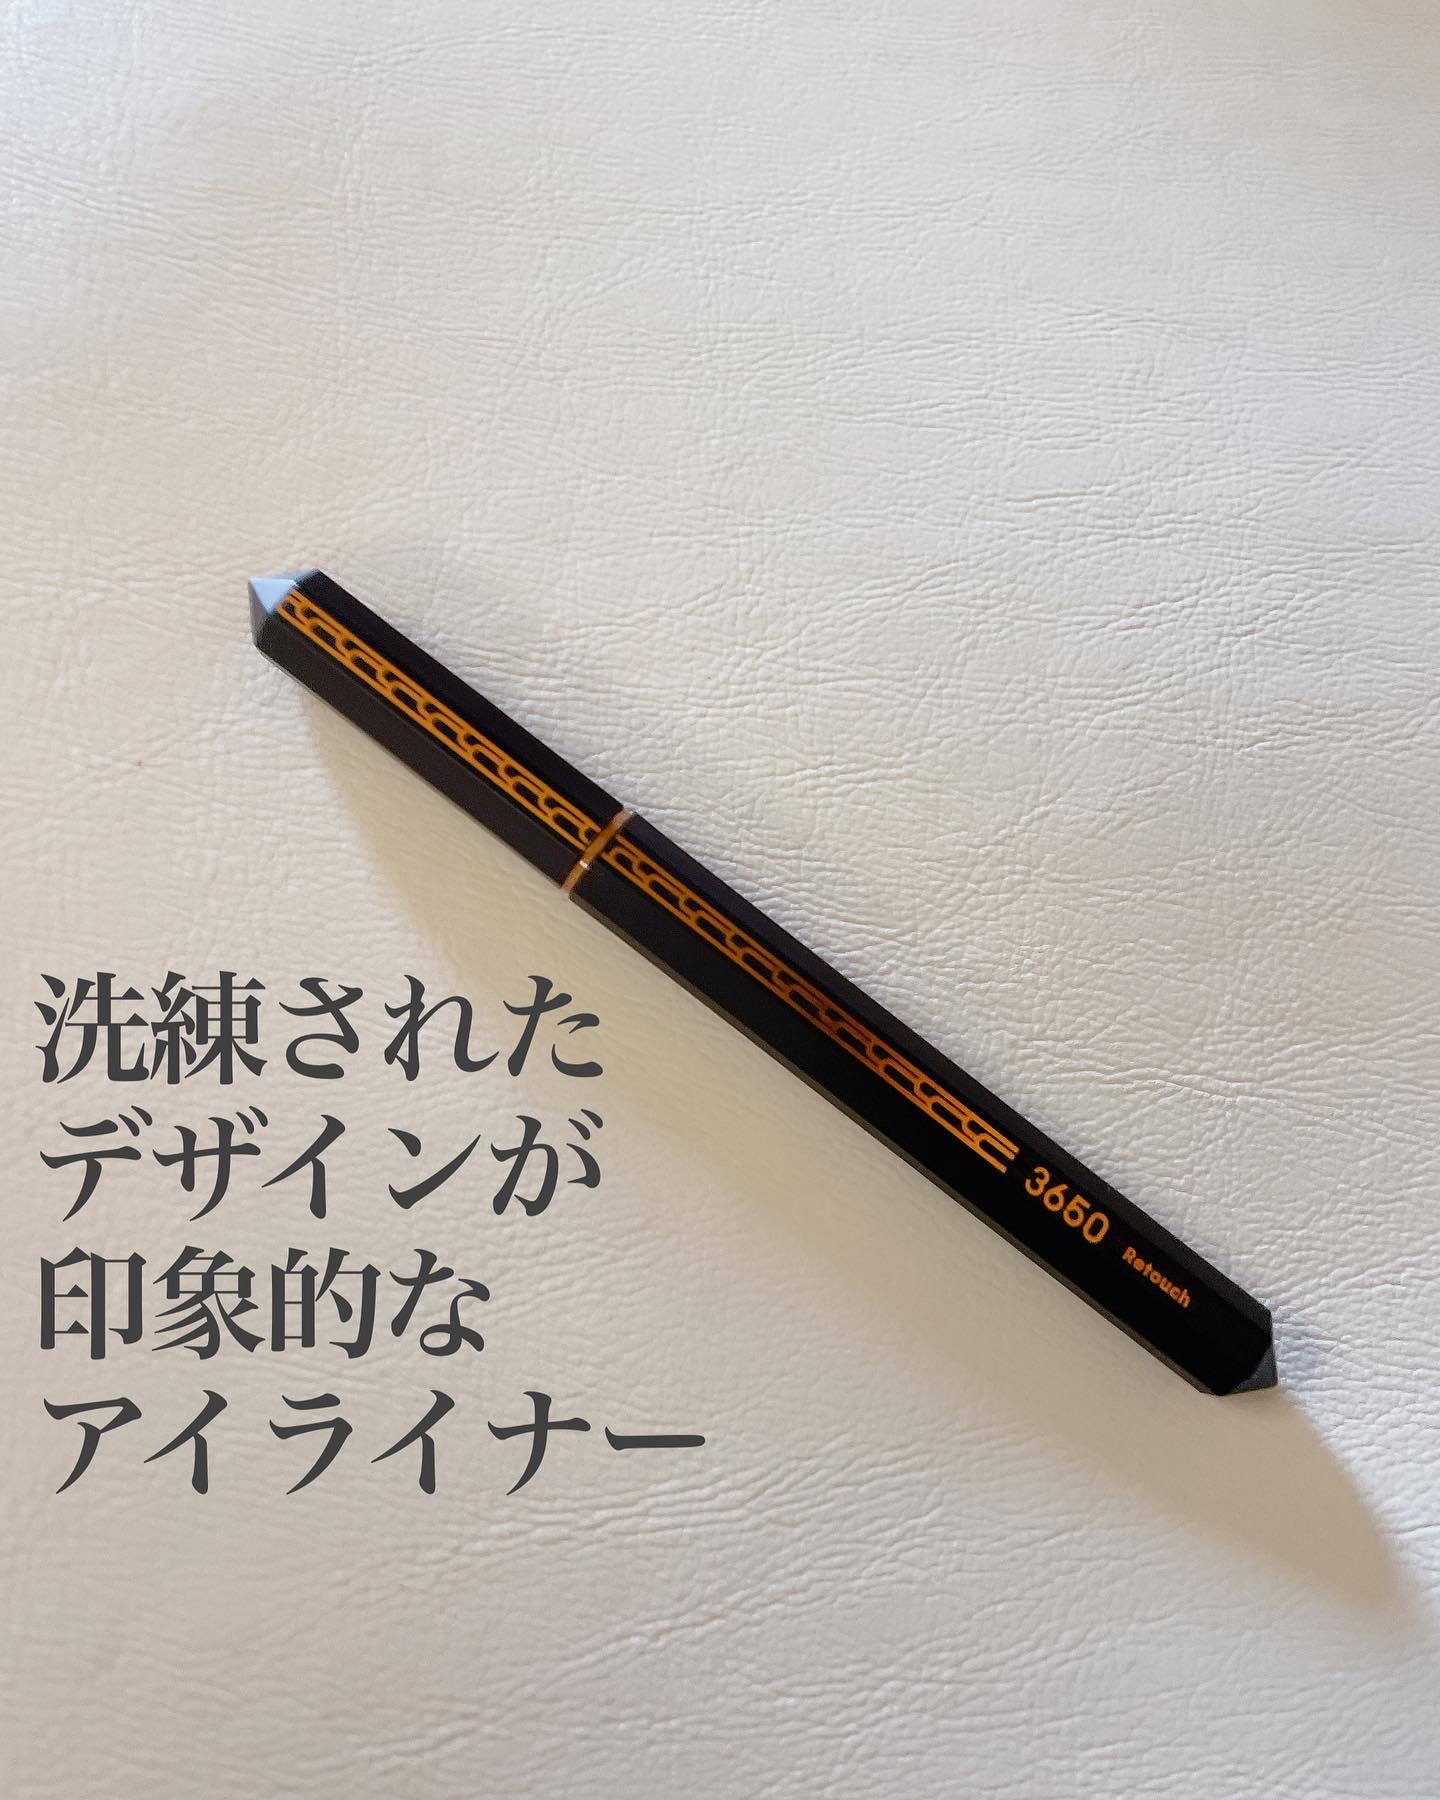 洗練された
デザインが
印象的な
アイライナー
3650
Retouch